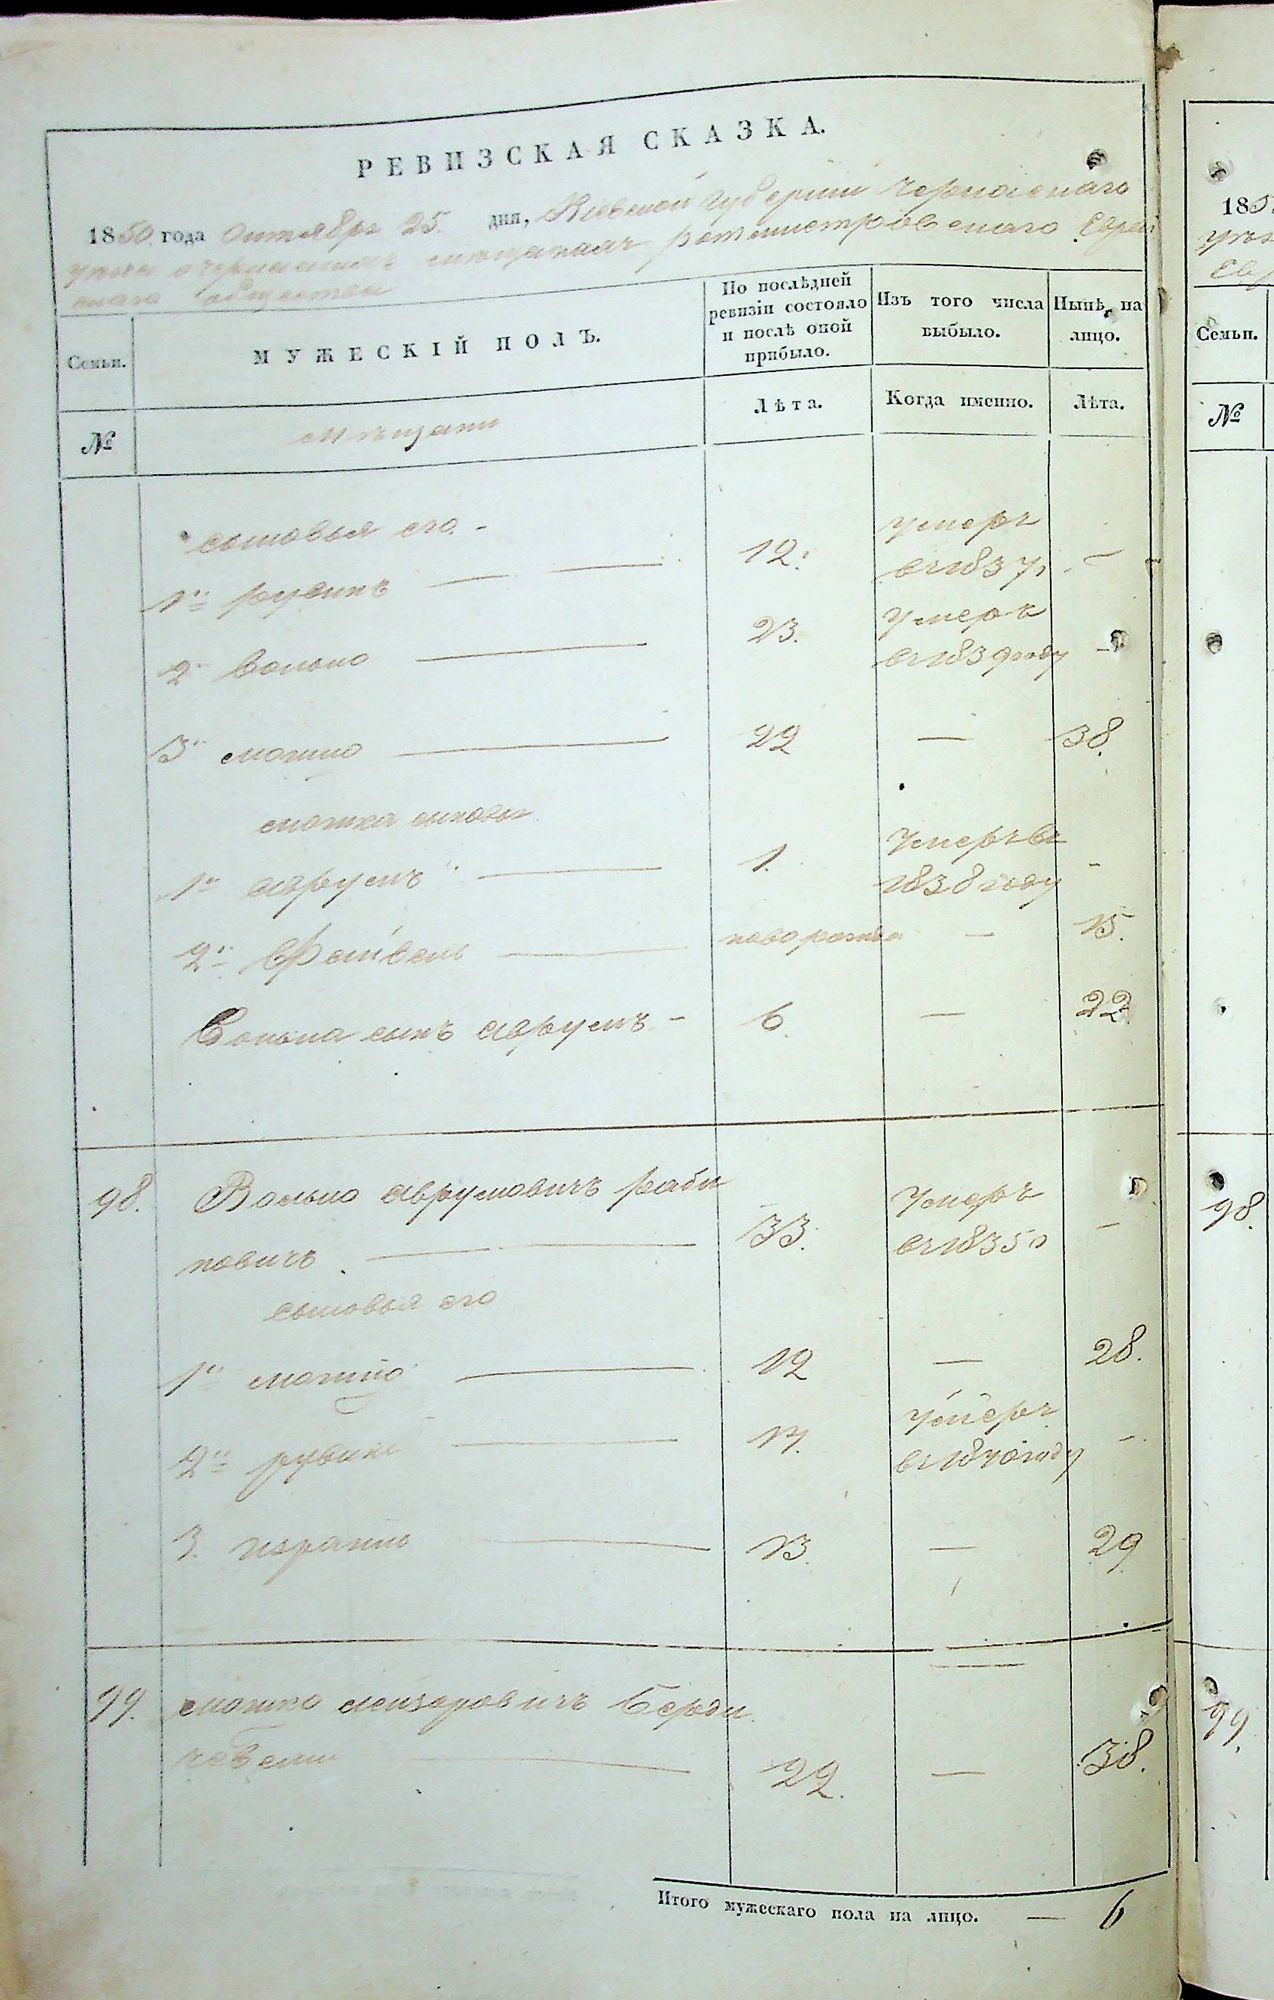 РЕВИЗСКАЯ СКАЗКА.
1850 года Октября 25 дня, Кіевской Губерніи Черкаскаго
уѣзда о мѣщанахъ Ротмистровскаго Еврей
скаго общества
Семьи.
МУЖЕСКІЙ ПОЛЪ.
По послѣдней ревизіи состояло и послѣ оной прибыло.
Изъ того числа выбыло.
Нынѣ на лицо.
№
мѣщани
Лѣта.
Когда именно.
Лѣта.
сыновья его -
1й рувинъ — — 12. умеръ в 1837 г. -
2й Волько — 23. умеръ в 1839 году -
3й мошко — 22 — 38.
мошка сыновья
1й аврумъ — 1. умеръ в 1838 году -
2й Файвель — новорожден — 15.
Волька сынъ аврумъ - 6. — 22
98. Волько аврумовичъ раби
новичъ — 33. умеръ в 1835 г -
сыновья его
1й мошко — 12 — 28.
2й рувинъ — 17. умеръ в 1840 году -
3. — 13. — 29
99. мошко лейзеровичъ Берди
чевски — 22. — 38.
Итого мужескаго пола на лицо. — 6
185
Семьи.
№
98.
99.